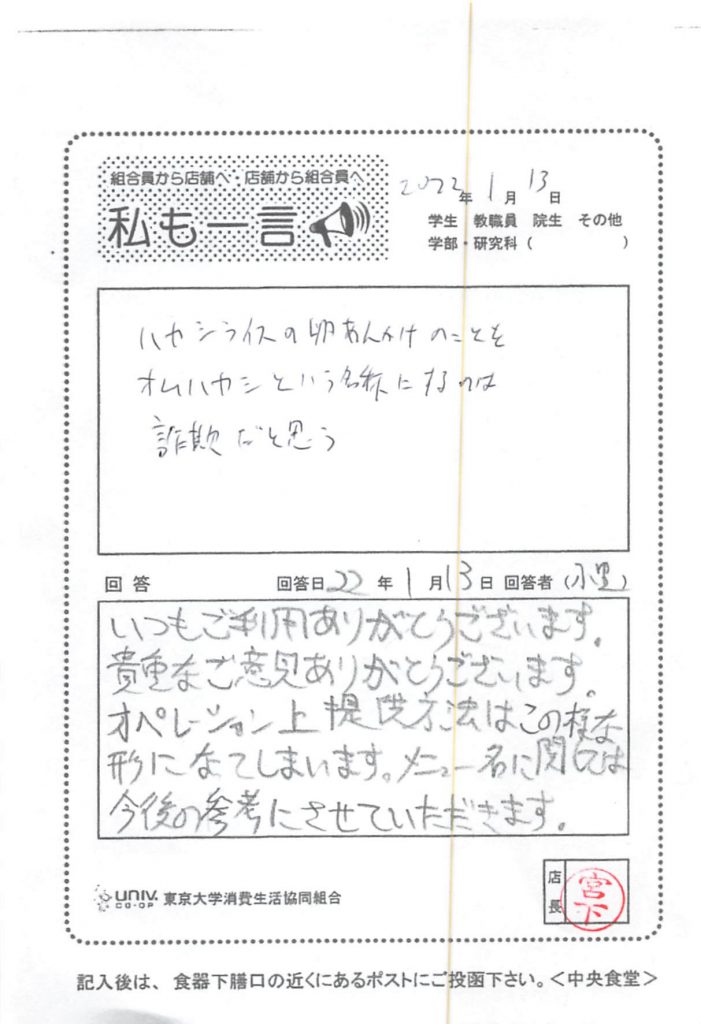 組合員から店舗へ・店舗から組合員へ
私も一言
2022年1月13日
学生 教職員 院生 その他
学部・研究科( )
ハヤシライスの卵あんかけのことを
オムハヤシという名称にするのは
詐欺だと思う
回答 回答日22年1月13日 回答者(小里)
いつもご利用ありがとうございます。
貴重なご意見ありがとうございます。
オペレーション上提供方法はこの様な
形になてしまいます。メニュー名に関しては
今後の参考にさせていただきます。
UNIV. CO-OP 東京大学消費生活協同組合
店長 宮下
記入後は、食器下膳口の近くにあるポストにご投函下さい。<中央食堂>